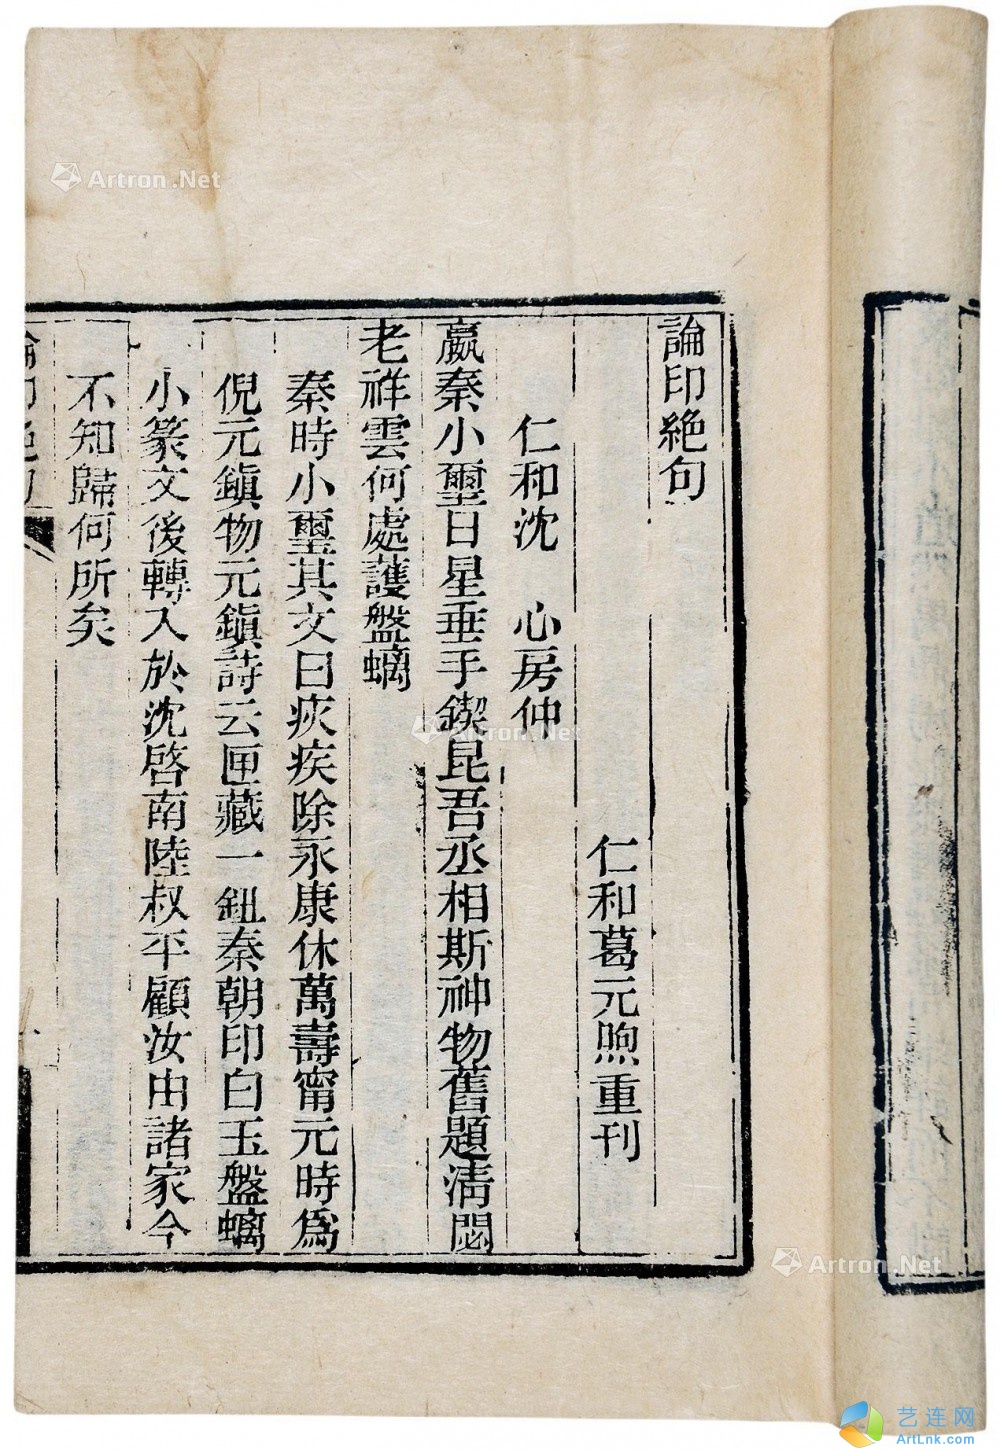 論印絶句
仁和葛元煦重刊
仁和沈　心房仲
嬴秦小璽日星垂手鍥昆吾丞相斯神物舊題清閟
老祥雲何處護盤螭
秦時小璽其文曰疢疾除永康休萬壽甯元時爲
倪元鎮物元鎮詩云匣藏一鈕秦朝印白玉盤螭
小篆文後轉入於沈啓南陸叔平顧汝由諸家今
不知歸何所矣
論印絶句
Artron.Net
Artron.Net
Artron.Net
艺连网
ArtLnk.com